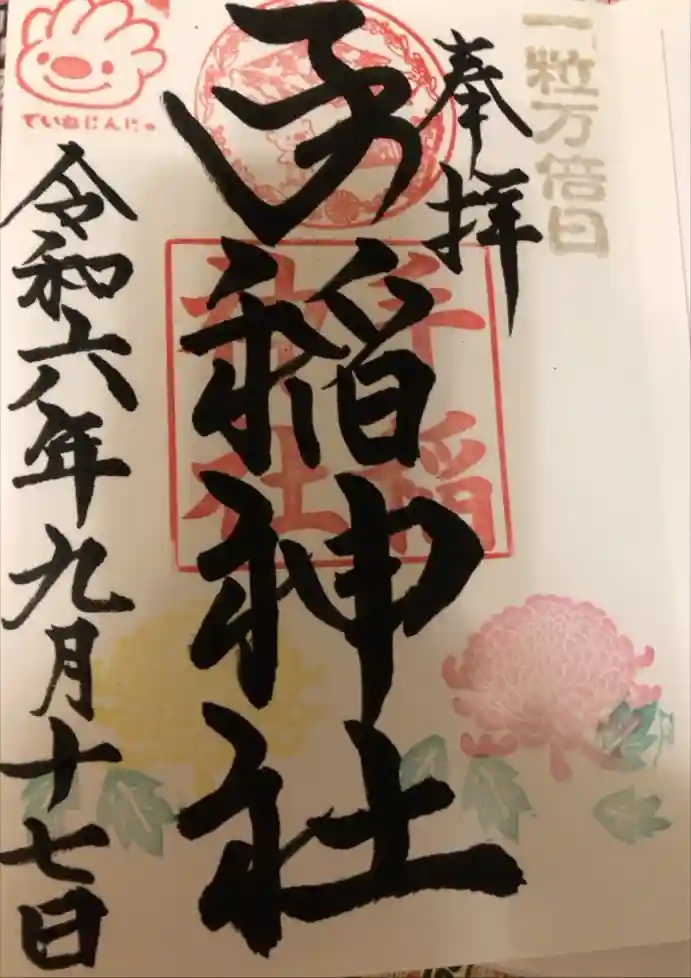 一粒万倍日
奉拝
手稲神社
手稲
神社
ていねじんじゃ
令和六年九月十七日